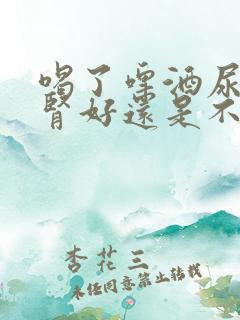 喝了啤酒尿
肾好还是不
杏花三
未经同意禁止转载